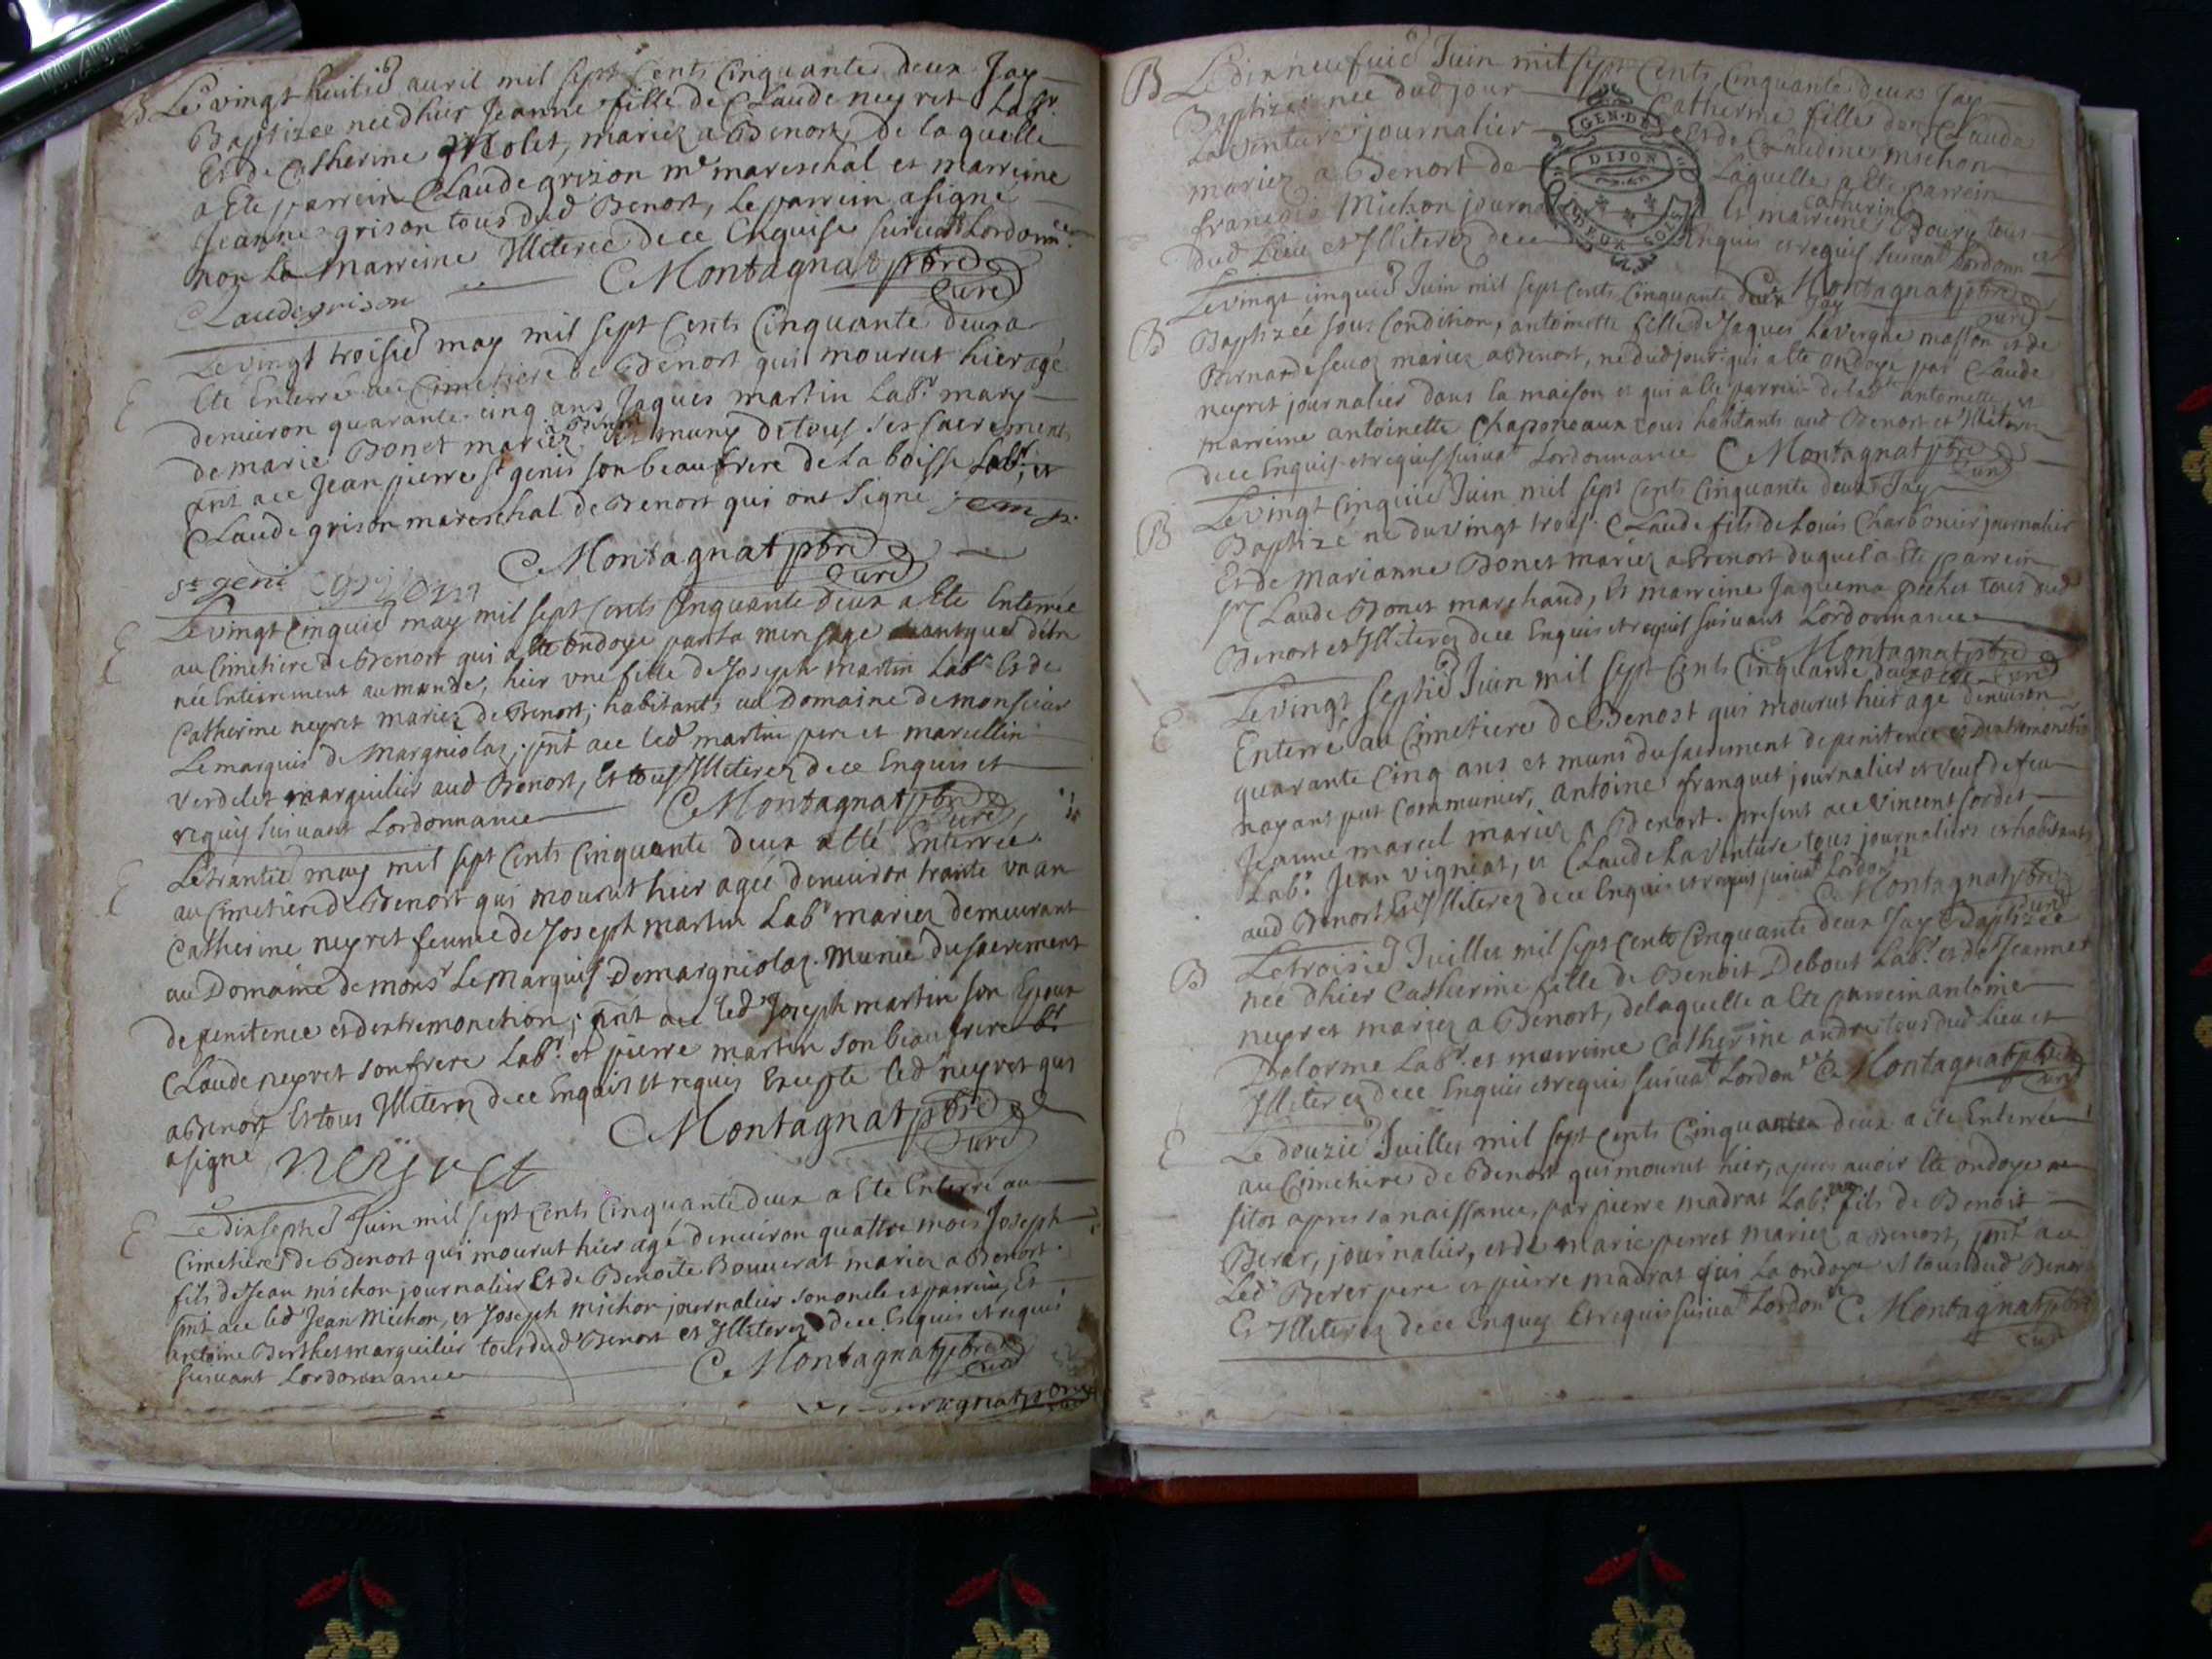 B Le vingt huitie avril mil sept Cents Cinquante deux Jay
Baptizee née dhier Jeanne fille de Claude neyret Labr
Et de Catherine Molet, mariez a Benort, de laquelle
a Eté parrein Claude grizon me mareschal et marreine
Jeanne grison tous dud Benort, Le parrein a signé
non La marreine Illiterée de ce Enquise suivat Lordonnce
Claude grison C Montagnat pbre
Curé
E Le vingt troisie may mil sept Cents Cinquante deux a
Eté Enterré au Cimetiere de Benort qui mourut hier agé
denviron quarante cinq ans Jaques martin Labr mary
de marie Bonet mariez a Benort et muny de tous ses sacrements
pnt a ce Jean pierre st genis son beaufrere de La boisse Labr, et
Claude grison mareschal de Benort qui ont Signé
C Montagnat pbre
Curé
st geni Grison
E Le vingt Cinquie may mil sept Cents Cinquante deux a Eté Enterrée
au Cimetiere de Benort qui a été ondoyé par la mere sage d'etre
née Entierement au monde, hier une fille de Joseph martin Labr Et de
Catherine neyret mariez de Benort, habitants au Domaine de monsieur
Le marquis de Margniolaz, pnt a ce led martin pere et marcellin
verdelet marguilier aud Benort, Et tous Illiterez de ce Enquis et
requis suivant Lordonnance C Montagnat pbre
Curé
E Le trantie may mil sept Cents Cinquante deux a Eté Enterrée
au Cimetiere de Benort qui mourut hier agée denviron trante un an
Catherine neyret femme de Joseph martin Labr mariez demeurant
au Domaine de monsr Le Marquis Demargniolaz. munie du sacrement
de penitence et dextremonction, pnt a ce led Joseph martin son Epoux
Claude neyret son frere Labr et pierre martin son beaufrere
a Benort Et tous Illiterez de ce Enquis et requis Excepte led neyret qui
a signé C Montagnat pbre
neyret Curé
E Le dix septie Juin mil sept Cents Cinquante deux a Eté Enterré au
Cimetiere de Benort qui mourut hier agé denviron quattre mois Joseph
fils de Jean michon journalier Et de Benoite Bouverat mariez a Benort.
pnt a ce led Jean Michon, et Joseph michon journalier son oncle et parrein, Et
antoine Berthet marguilier tous dud Benort et Illiterez de ce Enquis et requis
suivant Lordonnance C Montagnat pbre
Curé
B Le dix neufvie Juin mil sept Cents Cinquante deux Jay
Baptizee née dud jour Catherine fille de Claude
Laventure journalier Et de Claudine michon
mariez a Benort de Laquelle a Eté parrein
francois Michon journa et marreine Catherine Boury tous
dud Lieu et Illiterez de ce Enquis et requis suivat Lordonnce
GEN. DE
DIJON
C Montagnat pbre
Curé
B Le vingt cinquie Juin mil sept Cents Cinquante deux Jay
Baptizée sous Condition, antoinette fille de Jaques Lavergne masson et de
Bernarde mariez a Benort, née dud jour qui a Eté ondoyé par Claude
neyret journalier dans la maison et qui a Eté parrein de lad antoinette, et
marreine antoinette Chaponeaux tous habitants aud Benort et Illiterez
de ce Enquis et requis suivat Lordonnance C Montagnat pbre
Curé
B Le vingt cinquie Juin mil sept Cents Cinquante deux Jay
Baptizé né du vingt trois. Claude fils de Louis Charbonier journalier
Et de Marianne Bonet mariez a Benort duquel a Eté parrein
sr Claude Bonet marchand, Et marreine Jaquema pechet tous dud
Benort et Illiterez de ce Enquis et requis suivant Lordonnance
C Montagnat pbre
Curé
E Le vingt septie Juin mil sept Cents Cinquante deux a Eté
Enterré au Cimetiere de Benost qui mourut hier agé denviron
quarante Cinq ans et muni du sacrement de penitence et dextremonction
nayant put Communier, antoine franquet journalier et veuf de feu
Jeanne marcel mariez a Benort. present a ce vincent sordet
Labr Jean vigniat, et Claude Laventure tous journaliers et habitants
aud Benort Et Illiterez de ce Enquis et requis suivat Lordonce
C Montagnat pbre
Curé
B Le troisie Juillet mil sept Cents Cinquante deux Jay Baptizée
née dhier Catherine fille de Benoit Debout Labr et de Jeanne
neyret mariez a Benort, de laquelle a Eté parrein antoine
Delorme Labr et marreine Catherine andre tous dud Lieu et
Illiterez de ce Enquis et requis suivat Lordonce C Montagnat pbre
Curé
E Le douzie Juillet mil sept Cents Cinquante deux a Eté Enterrée
au Cimetiere de Benort qui mourut hier, apres avoir Eté ondoyé
sitot apres sa naissance, par pierre madrat Labr un fils de Benoit
Berer, journalier, et de marie perret mariez a Benort, pnt a ce
Led Berer pere et pierre madrat qui La ondoye et tous dud Benort
Et Illiterez de ce Enquis Et requis suivat Lordonce C Montagnat pbre
Curé